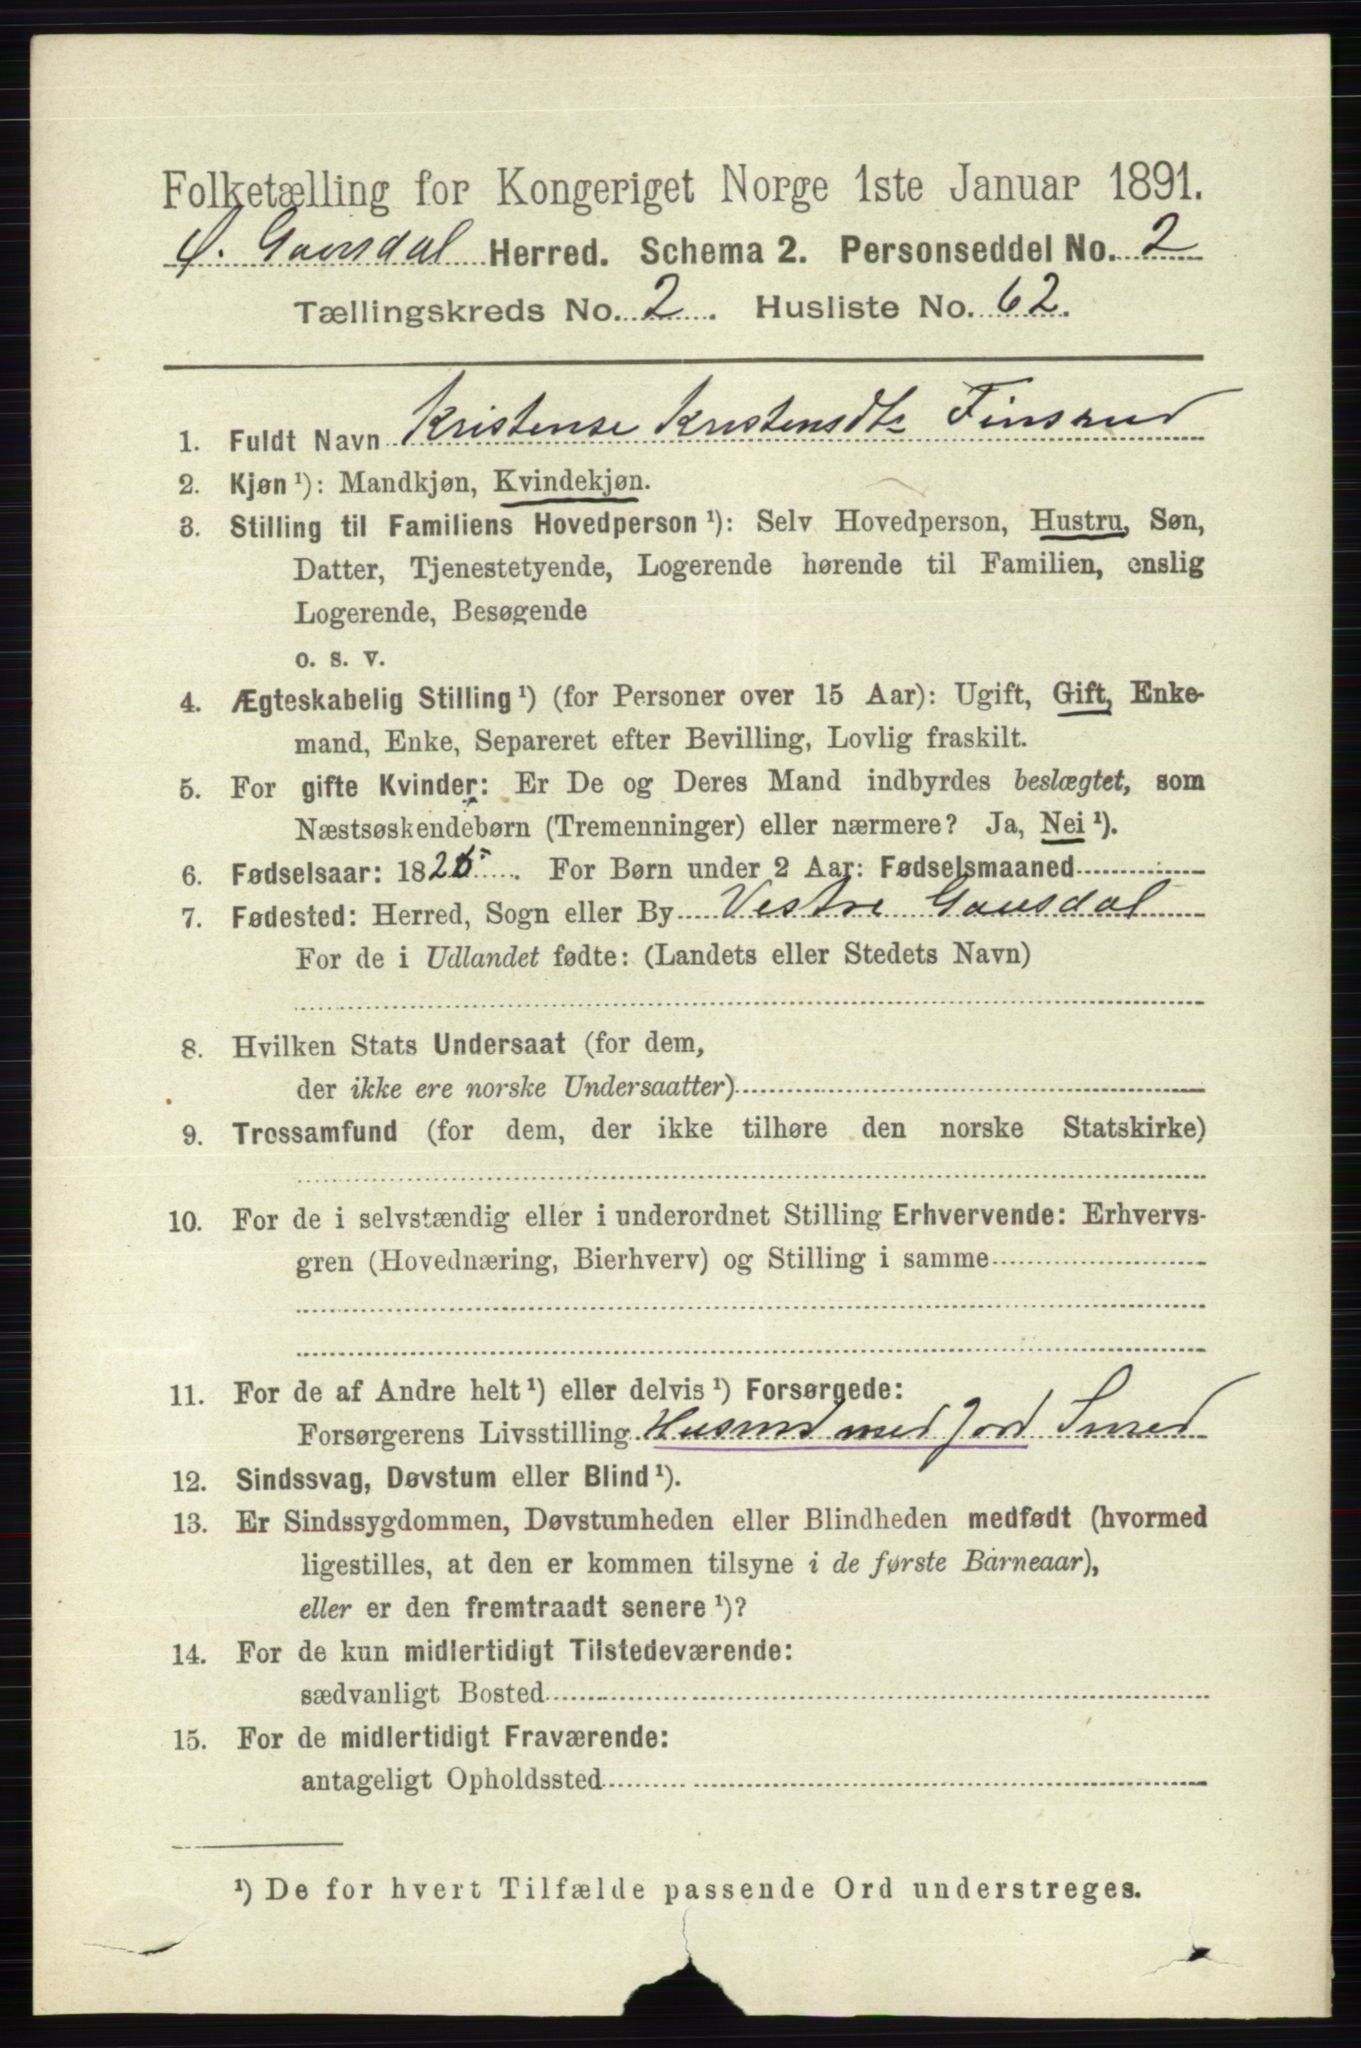 Folketælling for Kongeriget Norge 1ste Januar 1891.
Ø. Gausdal Herred. Schema 2. Personseddel No. 2
Tællingskreds No. 2. Husliste No. 62.
1. Fuldt Navn Kristense Kristensdtr Finsrud
2. Kjøn ¹): Mandkjøn, Kvindekjøn.
3. Stilling til Familiens Hovedperson ¹): Selv Hovedperson, Hustru, Søn,
Datter, Tjenestetyende, Logerende hørende til Familien, enslig
Logerende, Besøgende
o. s. v.
4. Ægteskabelig Stilling ¹) (for Personer over 15 Aar): Ugift, Gift, Enke-
mand, Enke, Separeret efter Bevilling, Lovlig fraskilt.
5. For gifte Kvinder: Er De og Deres Mand indbyrdes beslægtet, som
Næstsøskendebørn (Tremenninger) eller nærmere? Ja, Nei ¹).
6. Fødselsaar: 1825. For Børn under 2 Aar: Fødselsmaaned
7. Fødested: Herred, Sogn eller By Vestre Gausdal
For de i Udlandet fødte: (Landets eller Stedets Navn)
8. Hvilken Stats Undersaat (for dem,
der ikke ere norske Undersaatter)
9. Trossamfund (for dem, der ikke tilhøre den norske Statskirke)
10. For de i selvstændig eller i underordnet Stilling Erhvervende: Erhvervs-
gren (Hovednæring, Bierhverv) og Stilling i samme
11. For de af Andre helt ¹) eller delvis ¹) Forsørgede:
Forsørgerens Livsstilling Husmd med Jord Smed
12. Sindssvag, Døvstum eller Blind ¹).
13. Er Sindssygdommen, Døvstumheden eller Blindheden medfødt (hvormed
ligestilles, at den er kommen tilsyne i de første Barneaar),
eller er den fremtraadt senere ¹)?
14. For de kun midlertidigt Tilstedeværende:
sædvanligt Bosted
15. For de midlertidigt Fraværende:
antageligt Opholdssted
¹) De for hvert Tilfælde passende Ord understreges.